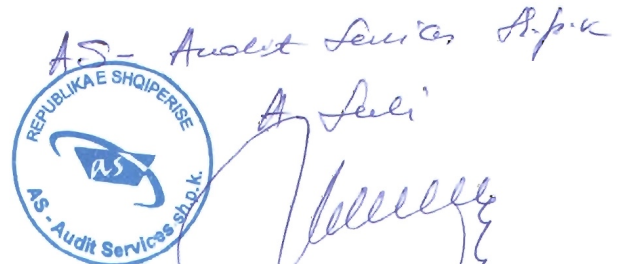 A.S - Audit Services Sh.p.k
REPUBLIKA E SHQIPERISE
as
AS - Audit Services sh.p.k.